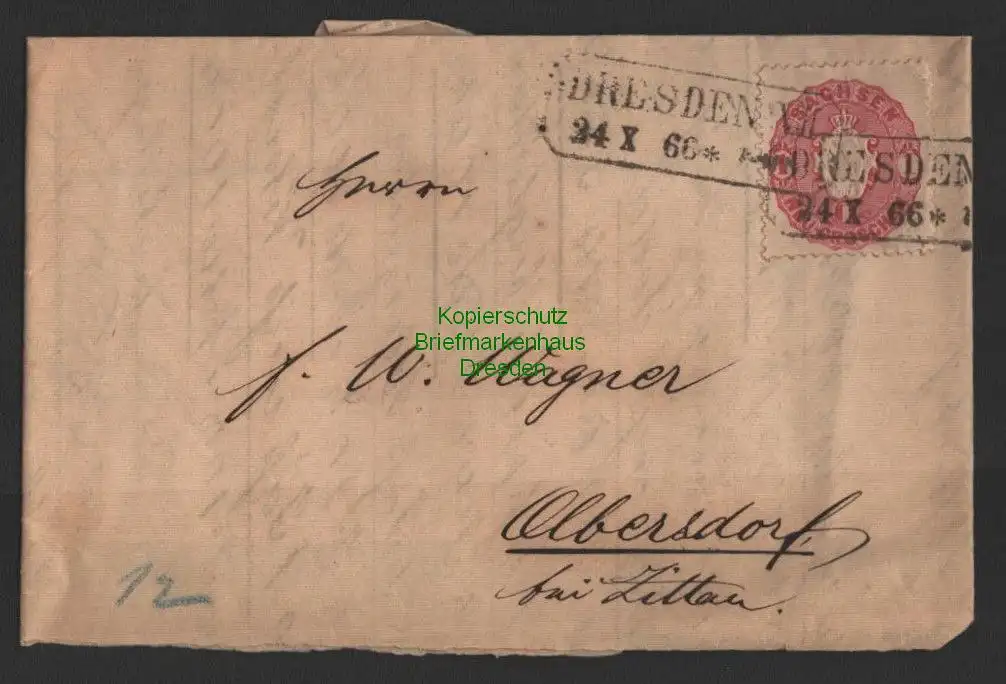 DRESDEN XI.
24 X 66*
SACHSEN
DRESDEN
24 X 66*
Herrn
Kopierschutz
Briefmarkenhaus
Dresden
F. W. Wagner
Olbersdorf,
bei Zittau.
12